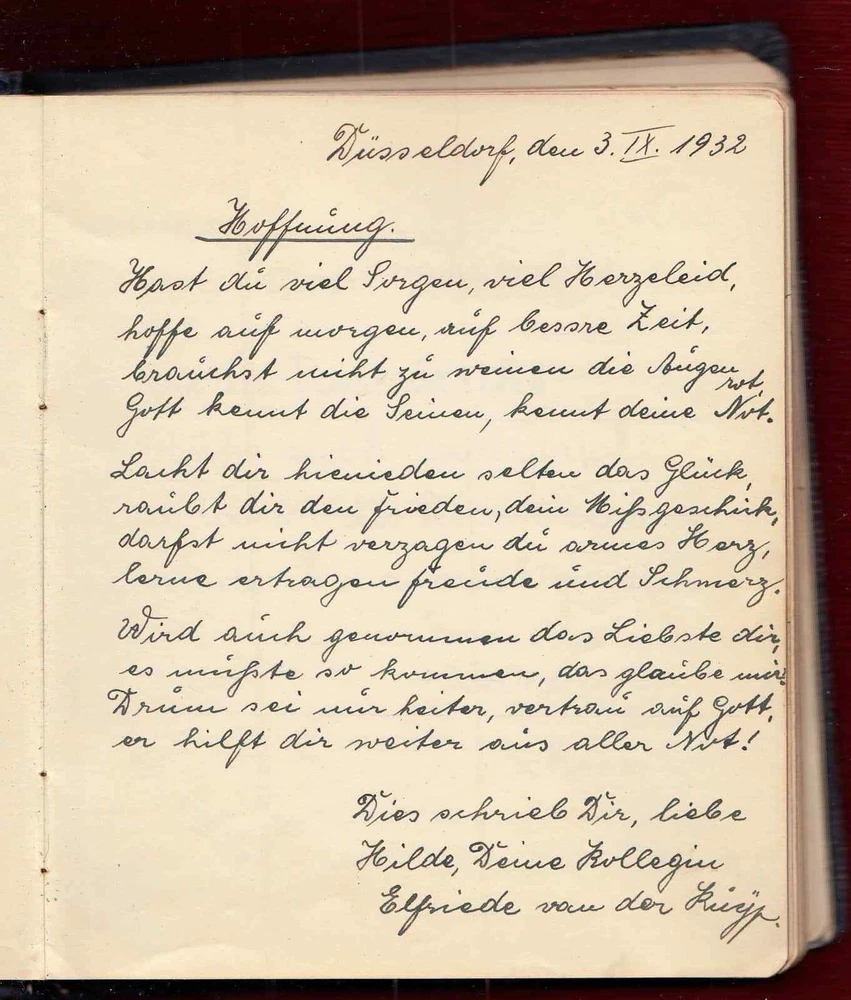 Düsseldorf, den 3. IX. 1932
Hoffnung.
Hast du viel Sorgen, viel Herzeleid,
hoffe auf morgen, auf bessre Zeit,
brauchst nicht zu weinen die Augen rot,
Gott kennt die Seinen, kennt deine Not.
Lacht dir hienieden selten das Glück,
raubt dir den Frieden, dein Mißgeschick,
darfst nicht verzagen du armes Herz,
lerne ertragen Freude und Schmerz.
Wird auch genommen das Liebste dir,
es mußte so kommen, das glaube mir.
Drum sei nur heiter, vertrau auf Gott,
er hilft dir weiter aus aller Not!
Dies schrieb Dir, liebe
Hilde, Deine Kollegin
Elfriede van der Kuÿp.